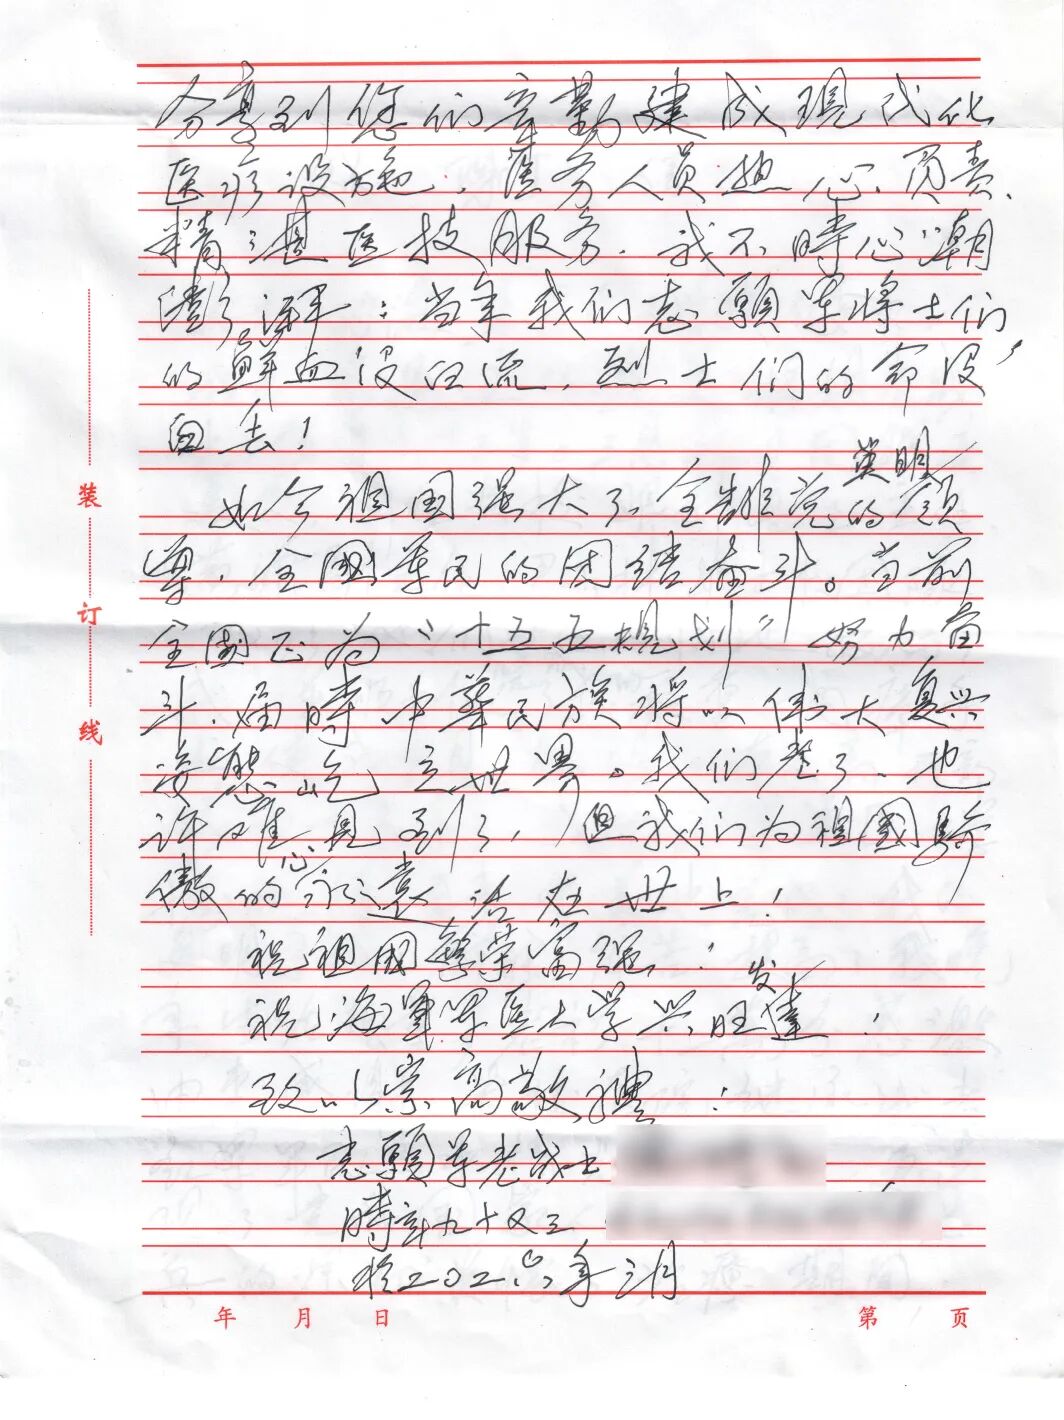 分享到您们辛勤建成现代化
医疗设施，医务人员热心、负责、
精湛医技服务。我不時心潮
澎湃：当年我们志愿军将士们
的鲜血没白流，烈士们的命没
白丢！
如今祖国强大了，全靠党英明的领
導，全國军民的团结奋斗。当前
全國正为“十五五規划”努力奋
斗，届時中華民族将以伟大复兴
姿態屹立世界。我们老了，也
许难見到了，但我们为祖國驕
傲的心永遠活在世上！
祝祖國繁荣富强！
祝海軍军医大学兴旺发達！
致以崇高敬禮！
志願军老战士
時年九十又三
於二〇二六年三月
装
订
线
年 月 日
第 页